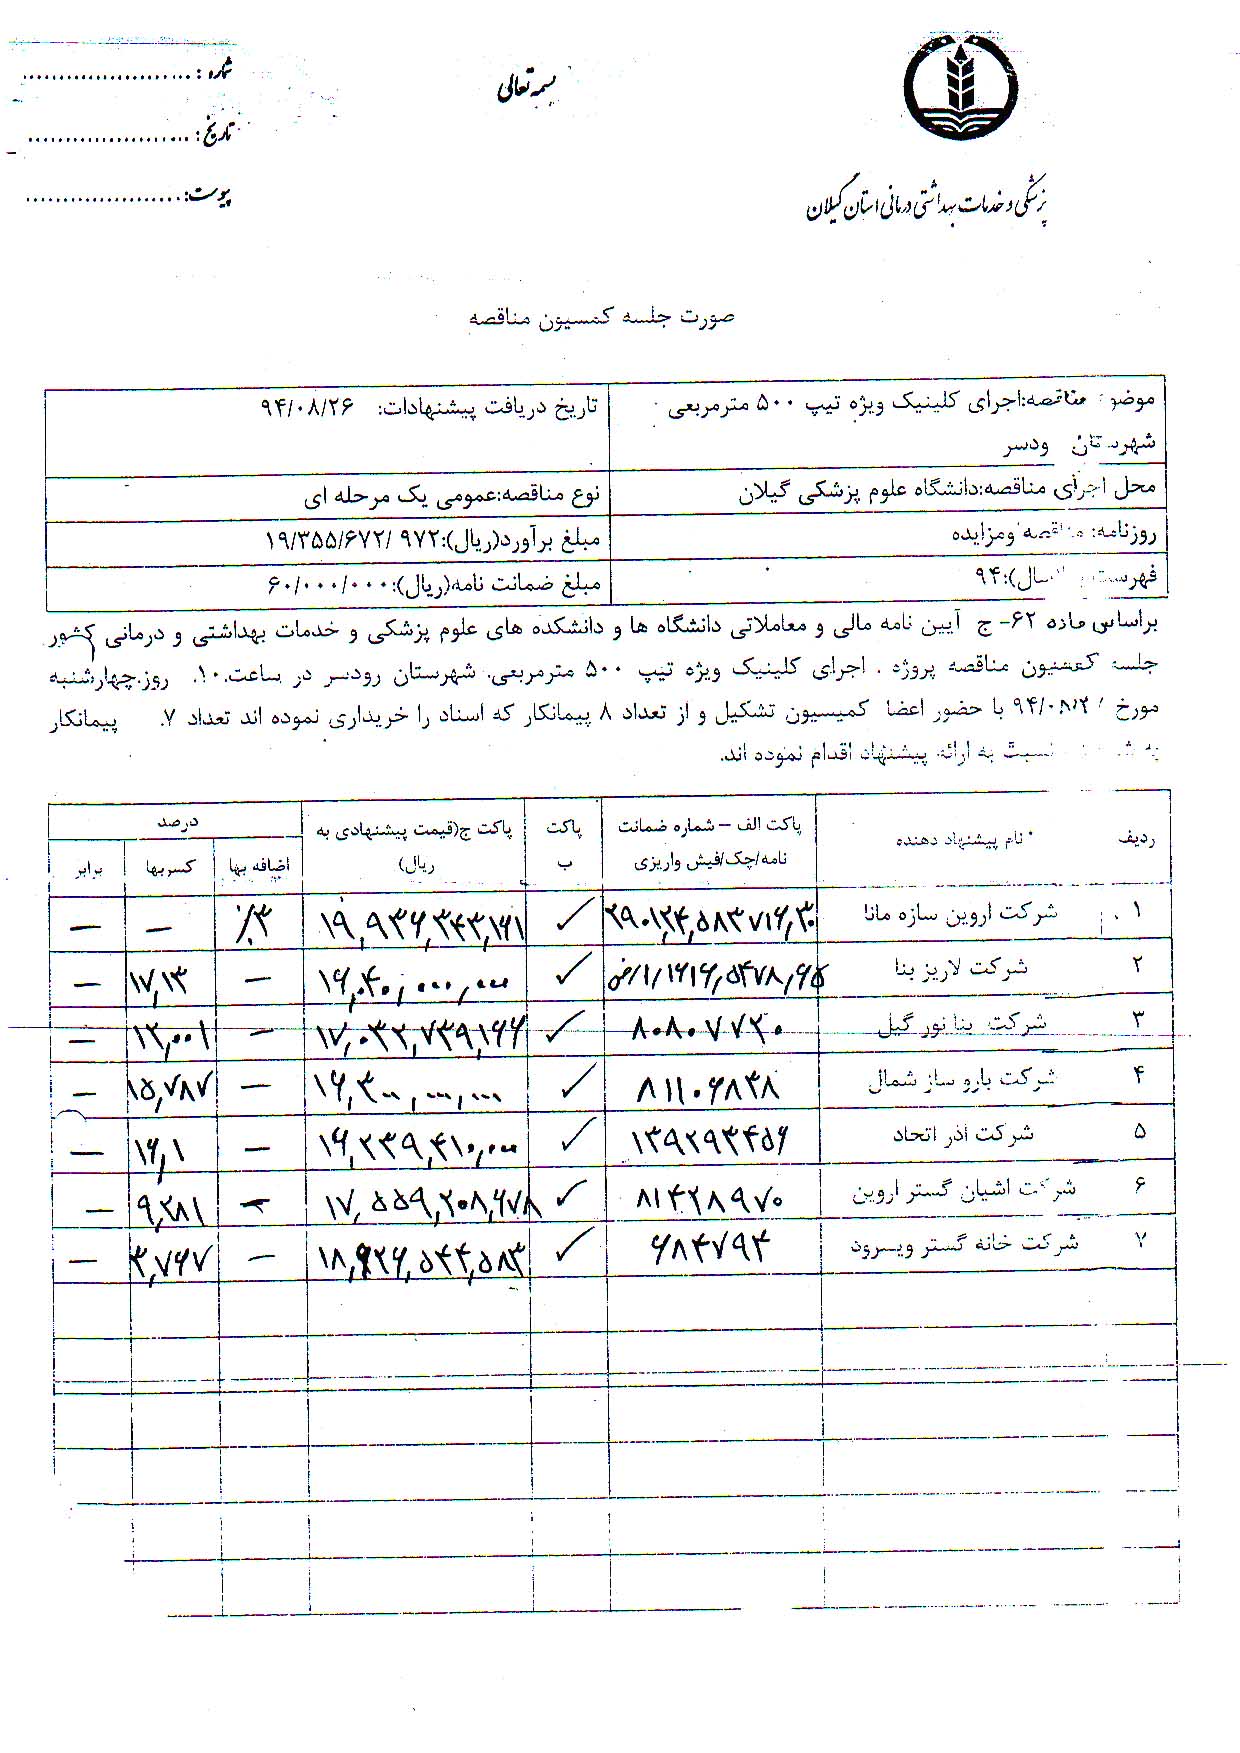 شماره :
تاریخ :
پیوست:
بسمه تعالی
پزشکی و خدمات بهداشتی درمانی استان گیلان
صورت جلسه کمسیون مناقصه
موضوع مناقصه:اجرای کلینیک ویژه تیپ ۵۰۰ مترمربعی
شهرستان ودسر
تاریخ دریافت پیشنهادات: ۹۴/۰۸/۲۶
محل اجرای مناقصه:دانشگاه علوم پزشکی گیلان
نوع مناقصه:عمومی یک مرحله ای
روزنامه: مناقصه ومزایده
مبلغ برآورد(ریال):۱۹/۳۵۵/۶۷۲/۹۷۲
فهرست سال):۹۴
مبلغ ضمانت نامه(ریال):۶۰/۰۰۰/۰۰۰
براساس ماده ۶۲- ج آیین نامه مالی و معاملاتی دانشگاه ها و دانشکده های علوم پزشکی و خدمات بهداشتی و درمانی کشور
جلسه کمسیون مناقصه پروژه . اجرای کلینیک ویژه تیپ ۵۰۰ مترمربعی. شهرستان رودسر در ساعت.۱۰. روز.چهارشنبه
مورخ با حضور اعضا کمیسیون تشکیل و از تعداد ۸ پیمانکار که اسناد را خریداری نموده اند تعداد ۷. پیمانکار
نسبت به ارائه پیشنهاد اقدام نموده اند.
ردیف نام پیشنهاد دهنده پاکت الف – شماره ضمانت نامه/چک/فیش واریزی پاکت ب پاکت ج(قیمت پیشنهادی به ریال) درصد
اضافه بها کسربها برابر
۱ شرکت اروین سازه مانا ✓ ۱۹,۹۳۶,۳۴۳,۱۶۱ ٪۳ – –
۲ شرکت لاریز بنا ✓ ۱۶,۰۴۰,۰۰۰,۰۰۰ – ۱۷,۱۳ –
۳ شرکت بنا نور گیل ۸۰۸۰۷۷۲۰ ✓ ۱۷,۰۳۲,۷۳۹,۱۶۶ – ۱۲,۰۰۱ –
۴ شرکت بارو ساز شمال ۸۱۱۰۶۸۳۸ ✓ ۱۶,۳۰۰,۰۰۰,۰۰۰ – ۱۵,۷۸۷ –
۵ شرکت آذر اتحاد ۱۳۹۲۹۳۴۵۶ ✓ ۱۶,۲۳۹,۴۱۰,۰۰۰ – ۱۶,۱ –
۶ شرکت اشیان گستر اروین ۸۱۴۲۸۹۷۰ ✓ ۱۷,۵۵۹,۲۰۸,۶۷۸ – ۹,۲۸۱ –
۷ شرکت خانه گستر ویسرود ۶۸۴۷۹۴ ✓ ۱۸,۶۲۶,۵۴۴,۵۸۳ – ۳,۷۶۷ –